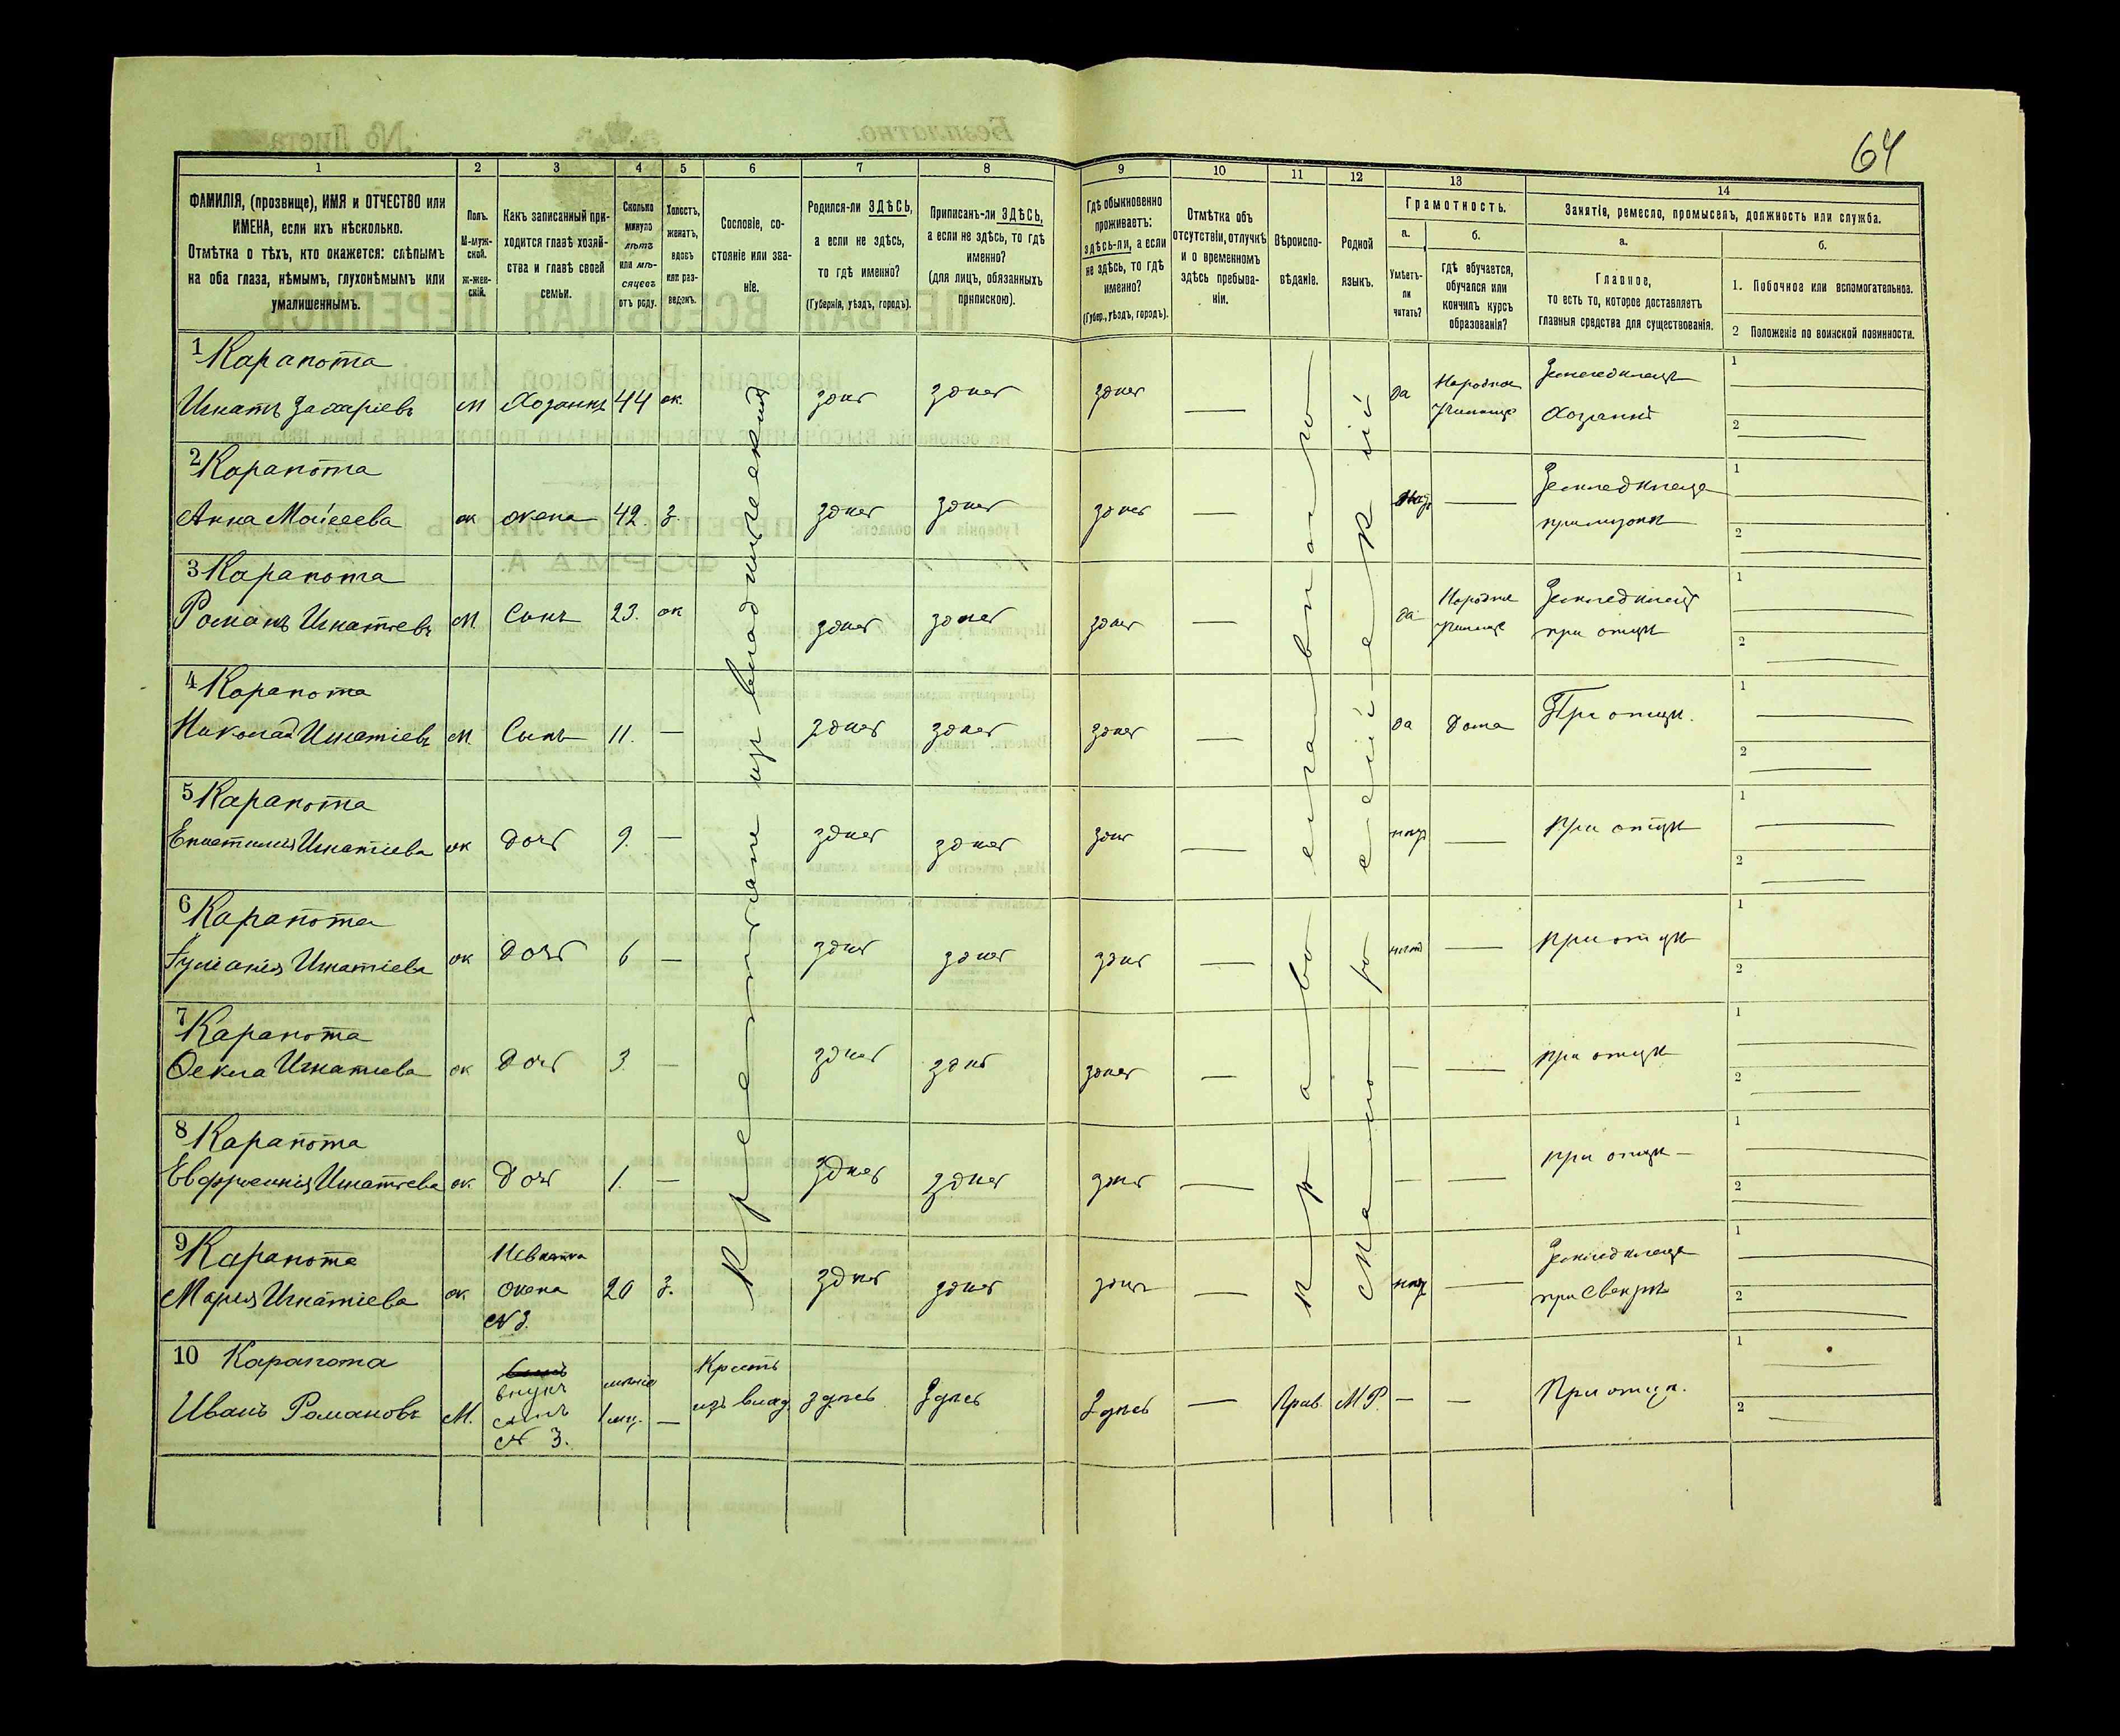 64
1 2 3 4 5 6 7 8 9 10 11 12 13 14
ФАМИЛІЯ, (прозвище), ИМЯ и ОТЧЕСТВО или
ИМЕНА, если ихъ нѣсколько.
Отмѣтка о тѣхъ, кто окажется: слѣпымъ
на оба глаза, нѣмымъ, глухонѣмымъ или
умалишеннымъ.
Полъ.
М-муж-
ской.
ж-жен-
скій.
Какъ записанный при-
ходится главѣ хозяй-
ства и главѣ своей
семьи.
Сколько
минуло
лѣтъ
или мѣ-
сяцевъ
отъ роду.
Холостъ,
женатъ,
вдовъ
или раз-
веденъ.
Сословіе, со-
стояніе или зва-
ніе.
Родился-ли ЗДѢСЬ,
а если не здѣсь,
то гдѣ именно?
(Губернія, уѣздъ, городъ).
Приписанъ-ли ЗДѢСЬ,
а если не здѣсь, то гдѣ
именно?
(для лицъ, обязанныхъ
припискою).
Гдѣ обыкновенно
проживаетъ:
здѣсь-ли, а если
не здѣсь, то гдѣ
именно?
(Губер., уѣздъ, городъ).
Отмѣтка объ
отсутствіи, отлучкѣ
и о временномъ
здѣсь пребыва-
ніи.
Вѣроиспо-
вѣданіе.
Родной
языкъ.
Грамотность.
а.
Умѣетъ-
ли
читать?
б.
гдѣ обучается,
обучался или
кончилъ курсъ
образованія?
Занятіе, ремесло, промыселъ, должность или служба.
а.
Главное,
то есть то, которое доставляетъ
главныя средства для существованія.
б.
1. Побочное или вспомогательное.
2 Положеніе по воинской повинности.
Крестьяне изъ владѣльческихъ
Православная
Малороссійскій
1 Карапота
Игнатъ Захаріевъ м Хозяинъ 44 ж. здѣсь здѣсь здѣсь — да Народное училище Земледѣлецъ Хозяинъ 1 2
2 Карапота
Анна Моисеева ж жена 42 з. здѣсь здѣсь здѣсь — — Земледѣлица при мужѣ 1 2
3 Карапота
Романъ Игнатіевъ м. Сынъ 23. ж здѣсь здѣсь здѣсь — да Народное училище Земледѣлецъ при отцѣ 1 2
4 Карапота
Николай Игнатіевъ м. Сынъ 11. — здѣсь здѣсь здѣсь — да дома При отцѣ. 1 2
5 Карапота
Игнатіева ж дочь 9. — здѣсь здѣсь здѣсь — — при отцѣ 1 2
6 Карапота
Іуліанія Игнатіева ж дочь 6 — здѣсь здѣсь здѣсь — нѣтъ — при отцѣ 1 2
7 Карапота
Ѳекла Игнатіева ж дочь 3 — здѣсь здѣсь здѣсь — — — при отцѣ 1 2
8 Карапота
Евфросинія Игнатіева ж. дочь 1. — здѣсь здѣсь здѣсь — — — при отцѣ — 1 2
9 Карапота
Марія Игнатіева ж. Невѣстка жена № 3. 20 з. здѣсь здѣсь здѣсь — — Земледѣлица при свекрѣ 1 2
10 Карапота
Иванъ Романовъ М. внукъ сынъ № 3. 1 мц. — Крест. изъ влад. здѣсь здѣсь здѣсь — Прав. МР. — — При отцѣ. 1 2